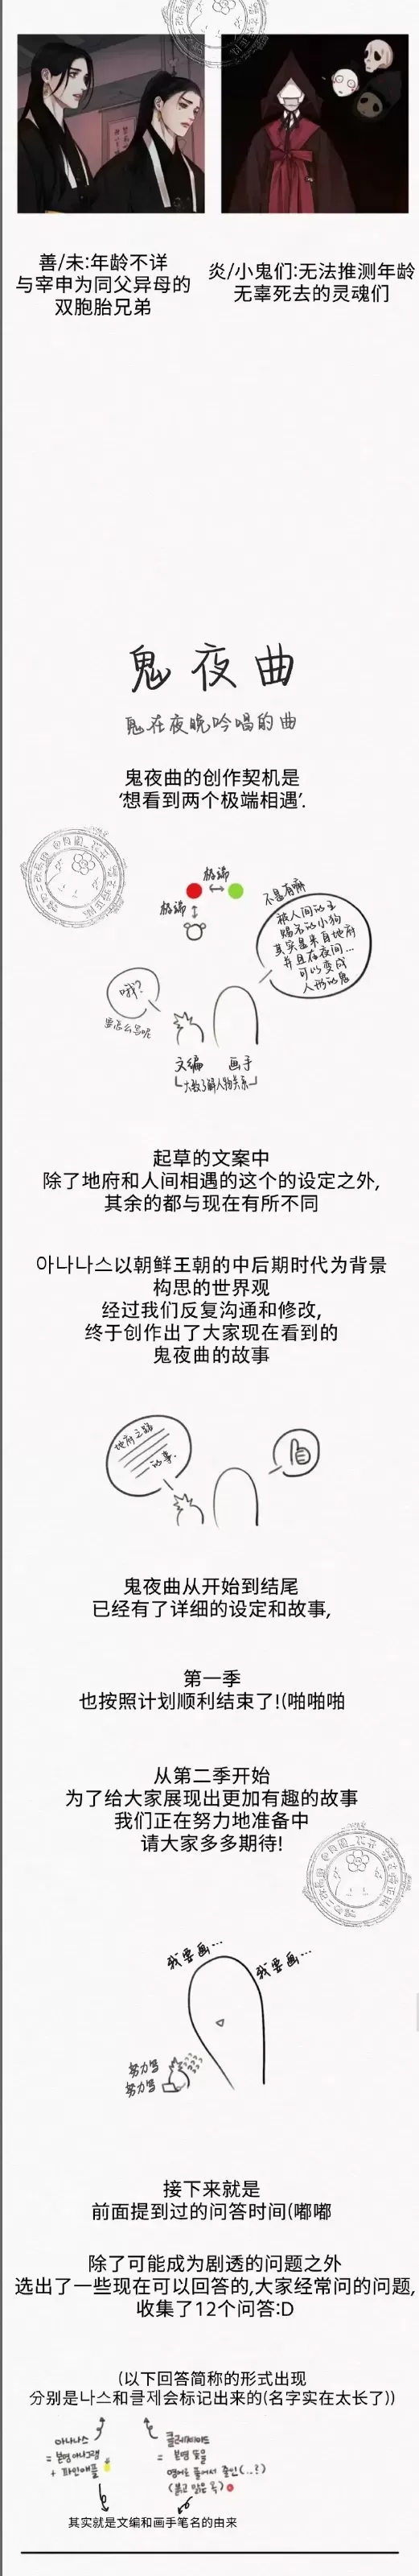 善/未:年龄不详
与宰申为同父异母的
双胞胎兄弟
炎/小鬼们:无法推测年龄
无辜死去的灵魂们
鬼夜曲
鬼在夜晚吟唱的曲
鬼夜曲的创作契机是
‘想看到两个极端相遇’.
极端
极端
不是有嘛
被人间的王
赐名的小狗
其实是来自地府
并且在夜间...
可以变成
人形的鬼
哦?
要怎么写呢
文编 画手
大致了解人物关系
起草的文案中
除了地府和人间相遇的这个的设定之外,
其余的都与现在有所不同
아나나스以朝鲜王朝的中后期时代为背景
构思的世界观
经过我们反复沟通和修改,
终于创作出了大家现在看到的
鬼夜曲的故事
地府之路
的事.
鬼夜曲从开始到结尾
已经有了详细的设定和故事,
第一季
也按照计划顺利结束了!(啪啪啪
从第二季开始
为了给大家展现出更加有趣的故事
我们正在努力地准备中
请大家多多期待!
我要画...
我要画...
努力写
努力写
接下来就是
前面提到过的问答时间(嘟嘟
除了可能成为剧透的问题之外
选出了一些现在可以回答的,大家经常问的问题,
收集了12个问答:D
(以下回答简称的形式出现
分别是나스和클제会标记出来的(名字实在太长了))
아나나스
= 본명 아나그램
+ 파인애플
= 본명 뜻을
영어로 풀어서 줄인(..?)
(붉고 맑은 옥)
其实就是文编和画手笔名的由来